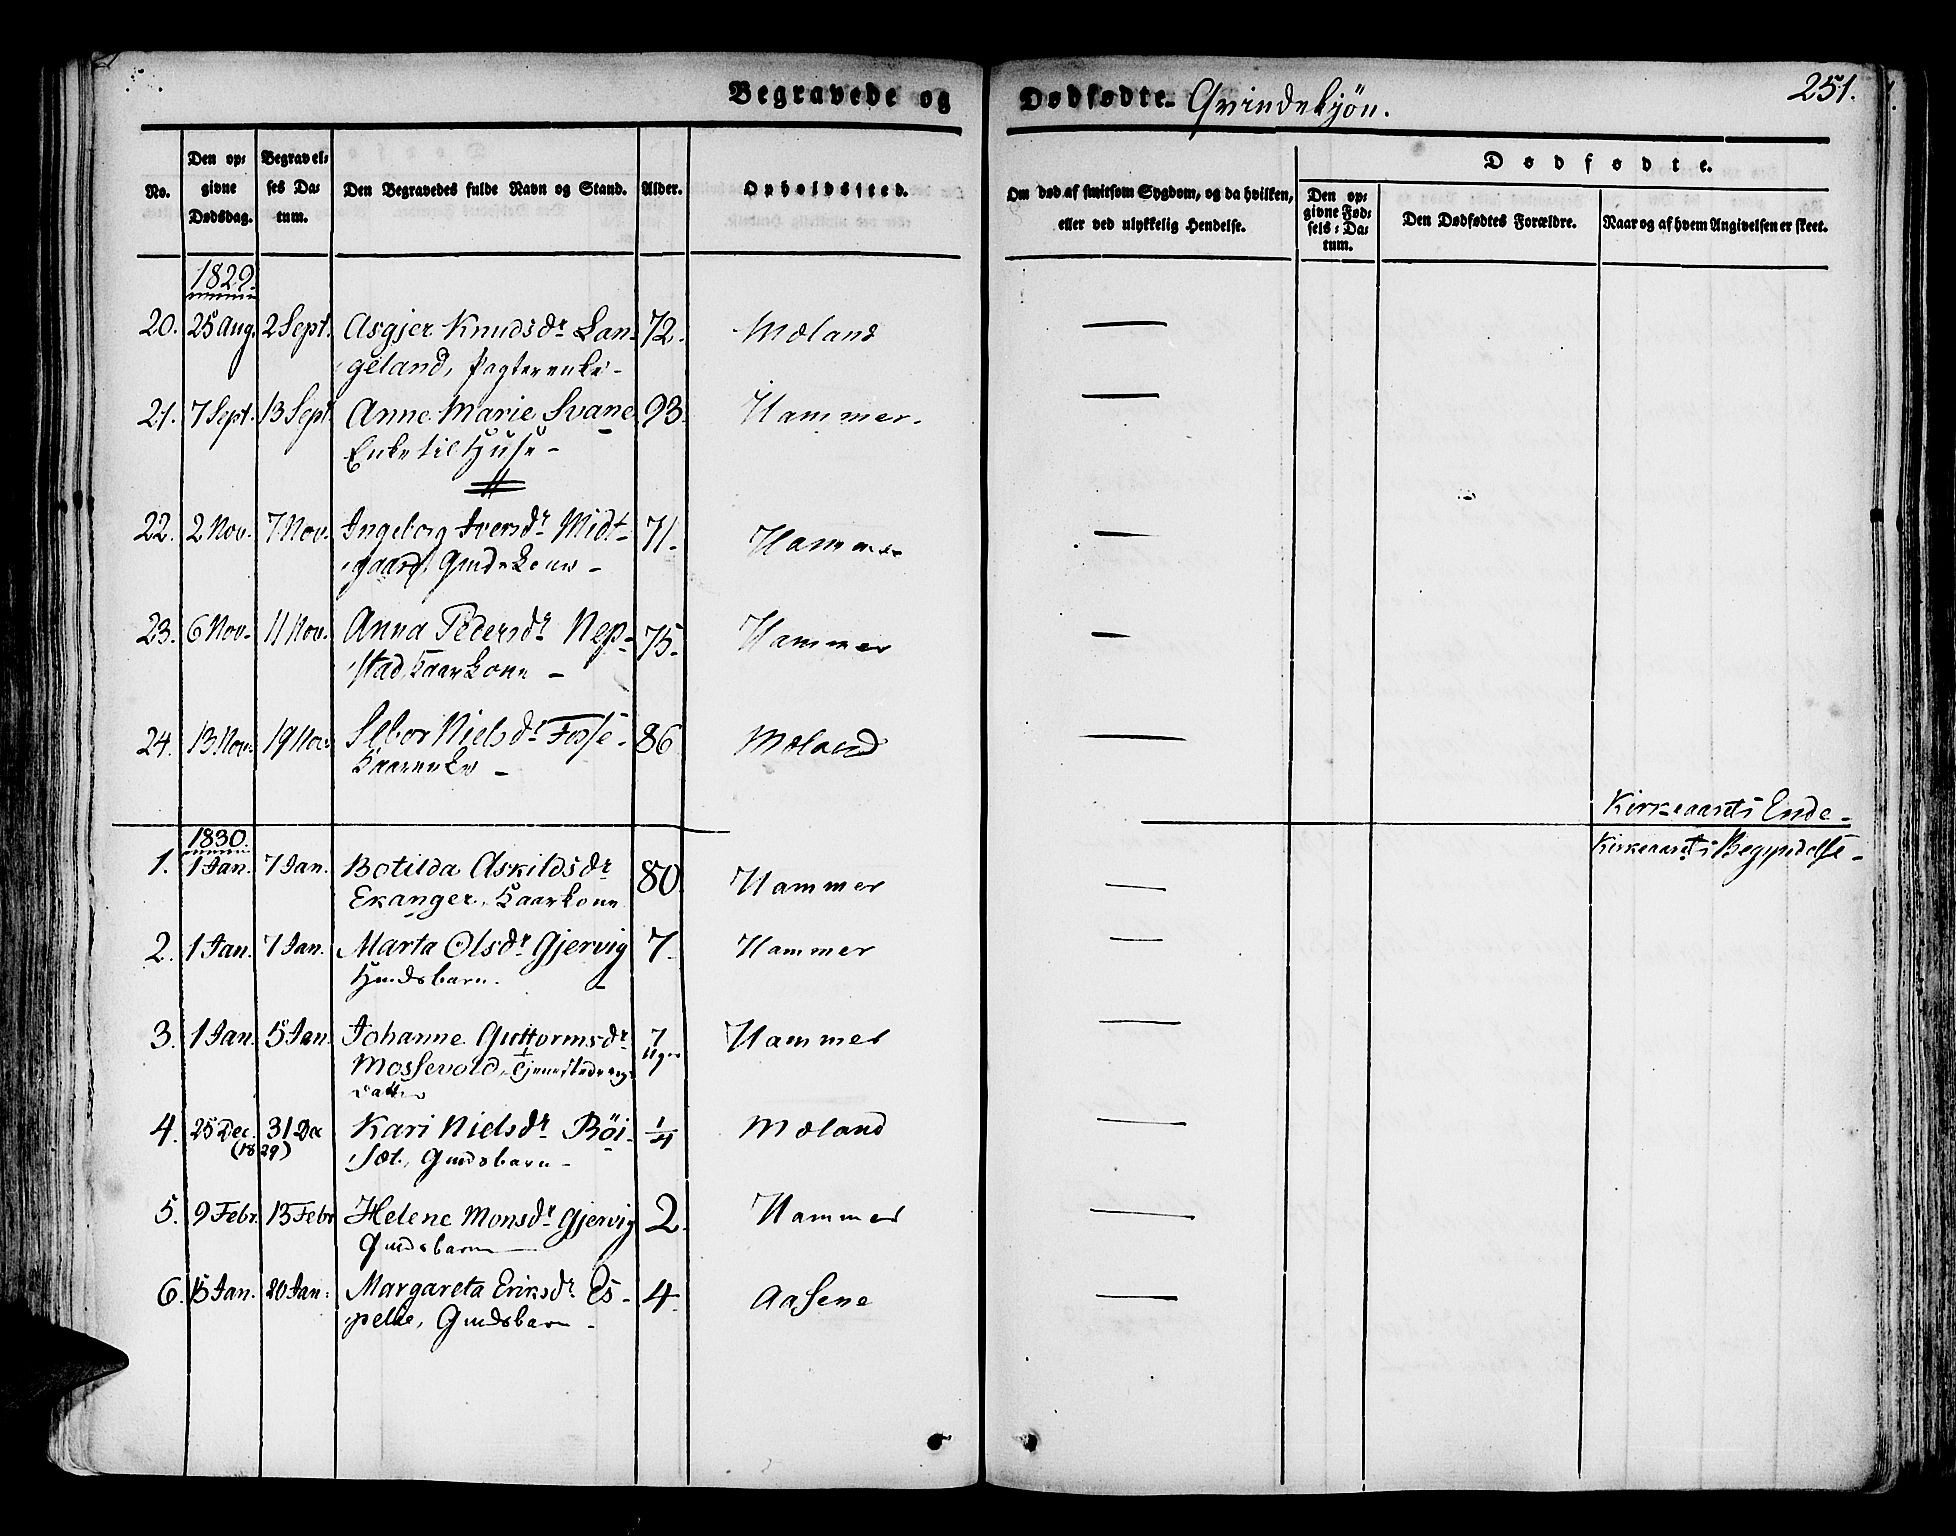 Begravede og Dødfødte. Qvindekjön. 251.
No.
Den opgivne Dødsdag.
Begravelses Datum.
Den Begravedes fulde Navn og Stand.
Alder.
Opholdssted.
Om død af smitsom Sygdom, og da hvilken, eller ved ulykkelig Hendelse.
Dødfødte.
Den opgivne Fødsels-Datum.
Den Dødfødtes Forældre.
Naar og af hvem Angivelsen er skeet.
1829.
20. 25 Aug. 2 Sept. Asgjer Knudsdr Lan- 72. Mæland —
geland, Pagterenke -
21. 7 Sept. 13 Sept Anne Marie Svane 93. Hammer. —
Enke til Huse -
22. 2 Nov. 7 Nov. Ingeborg Iversdr Midt- 71. Hammer —
gaard, Gmdskone -
23. 6 Nov. 11 Nov. Anna Pedersdr Nep- 75. Hammer —
stad, Kaarkone -
24. 13 Nov. 19 Nov. Selbor Nielsdr Fosse - 86 Mæland —
Kaarenke -
Kirkeaarets Ende -
1830.
Kirkeaarets Begyndelse -
1. 1 Jan. 7 Jan. Botilda Askildsdr 80. Hammer —
Ekanger, Kaarkone
2. 1 Jan. 7 Jan. Marta Olsdr Gjervig 7. Hammer —
Hmdsbarn.
3. 1 Jan. 5 Jan. Johanne Guttormsdr 7 Hammer —
Mossevold, Uger
datter
4. 25 Dec. 31 Dec Kari Nielsdr Röi- 1/4 Mæland —
(1829)
sæt, Gmdsbarn -
5. 9 Febr. 13 Febr Helene Monsdr Gjervig 2. Hammer —
Gmdsbarn —
6. 15 Jan. 20 Jan: Margareta Eriksdr Es- 4. Aasene —
pelie, Gmdsbarn -